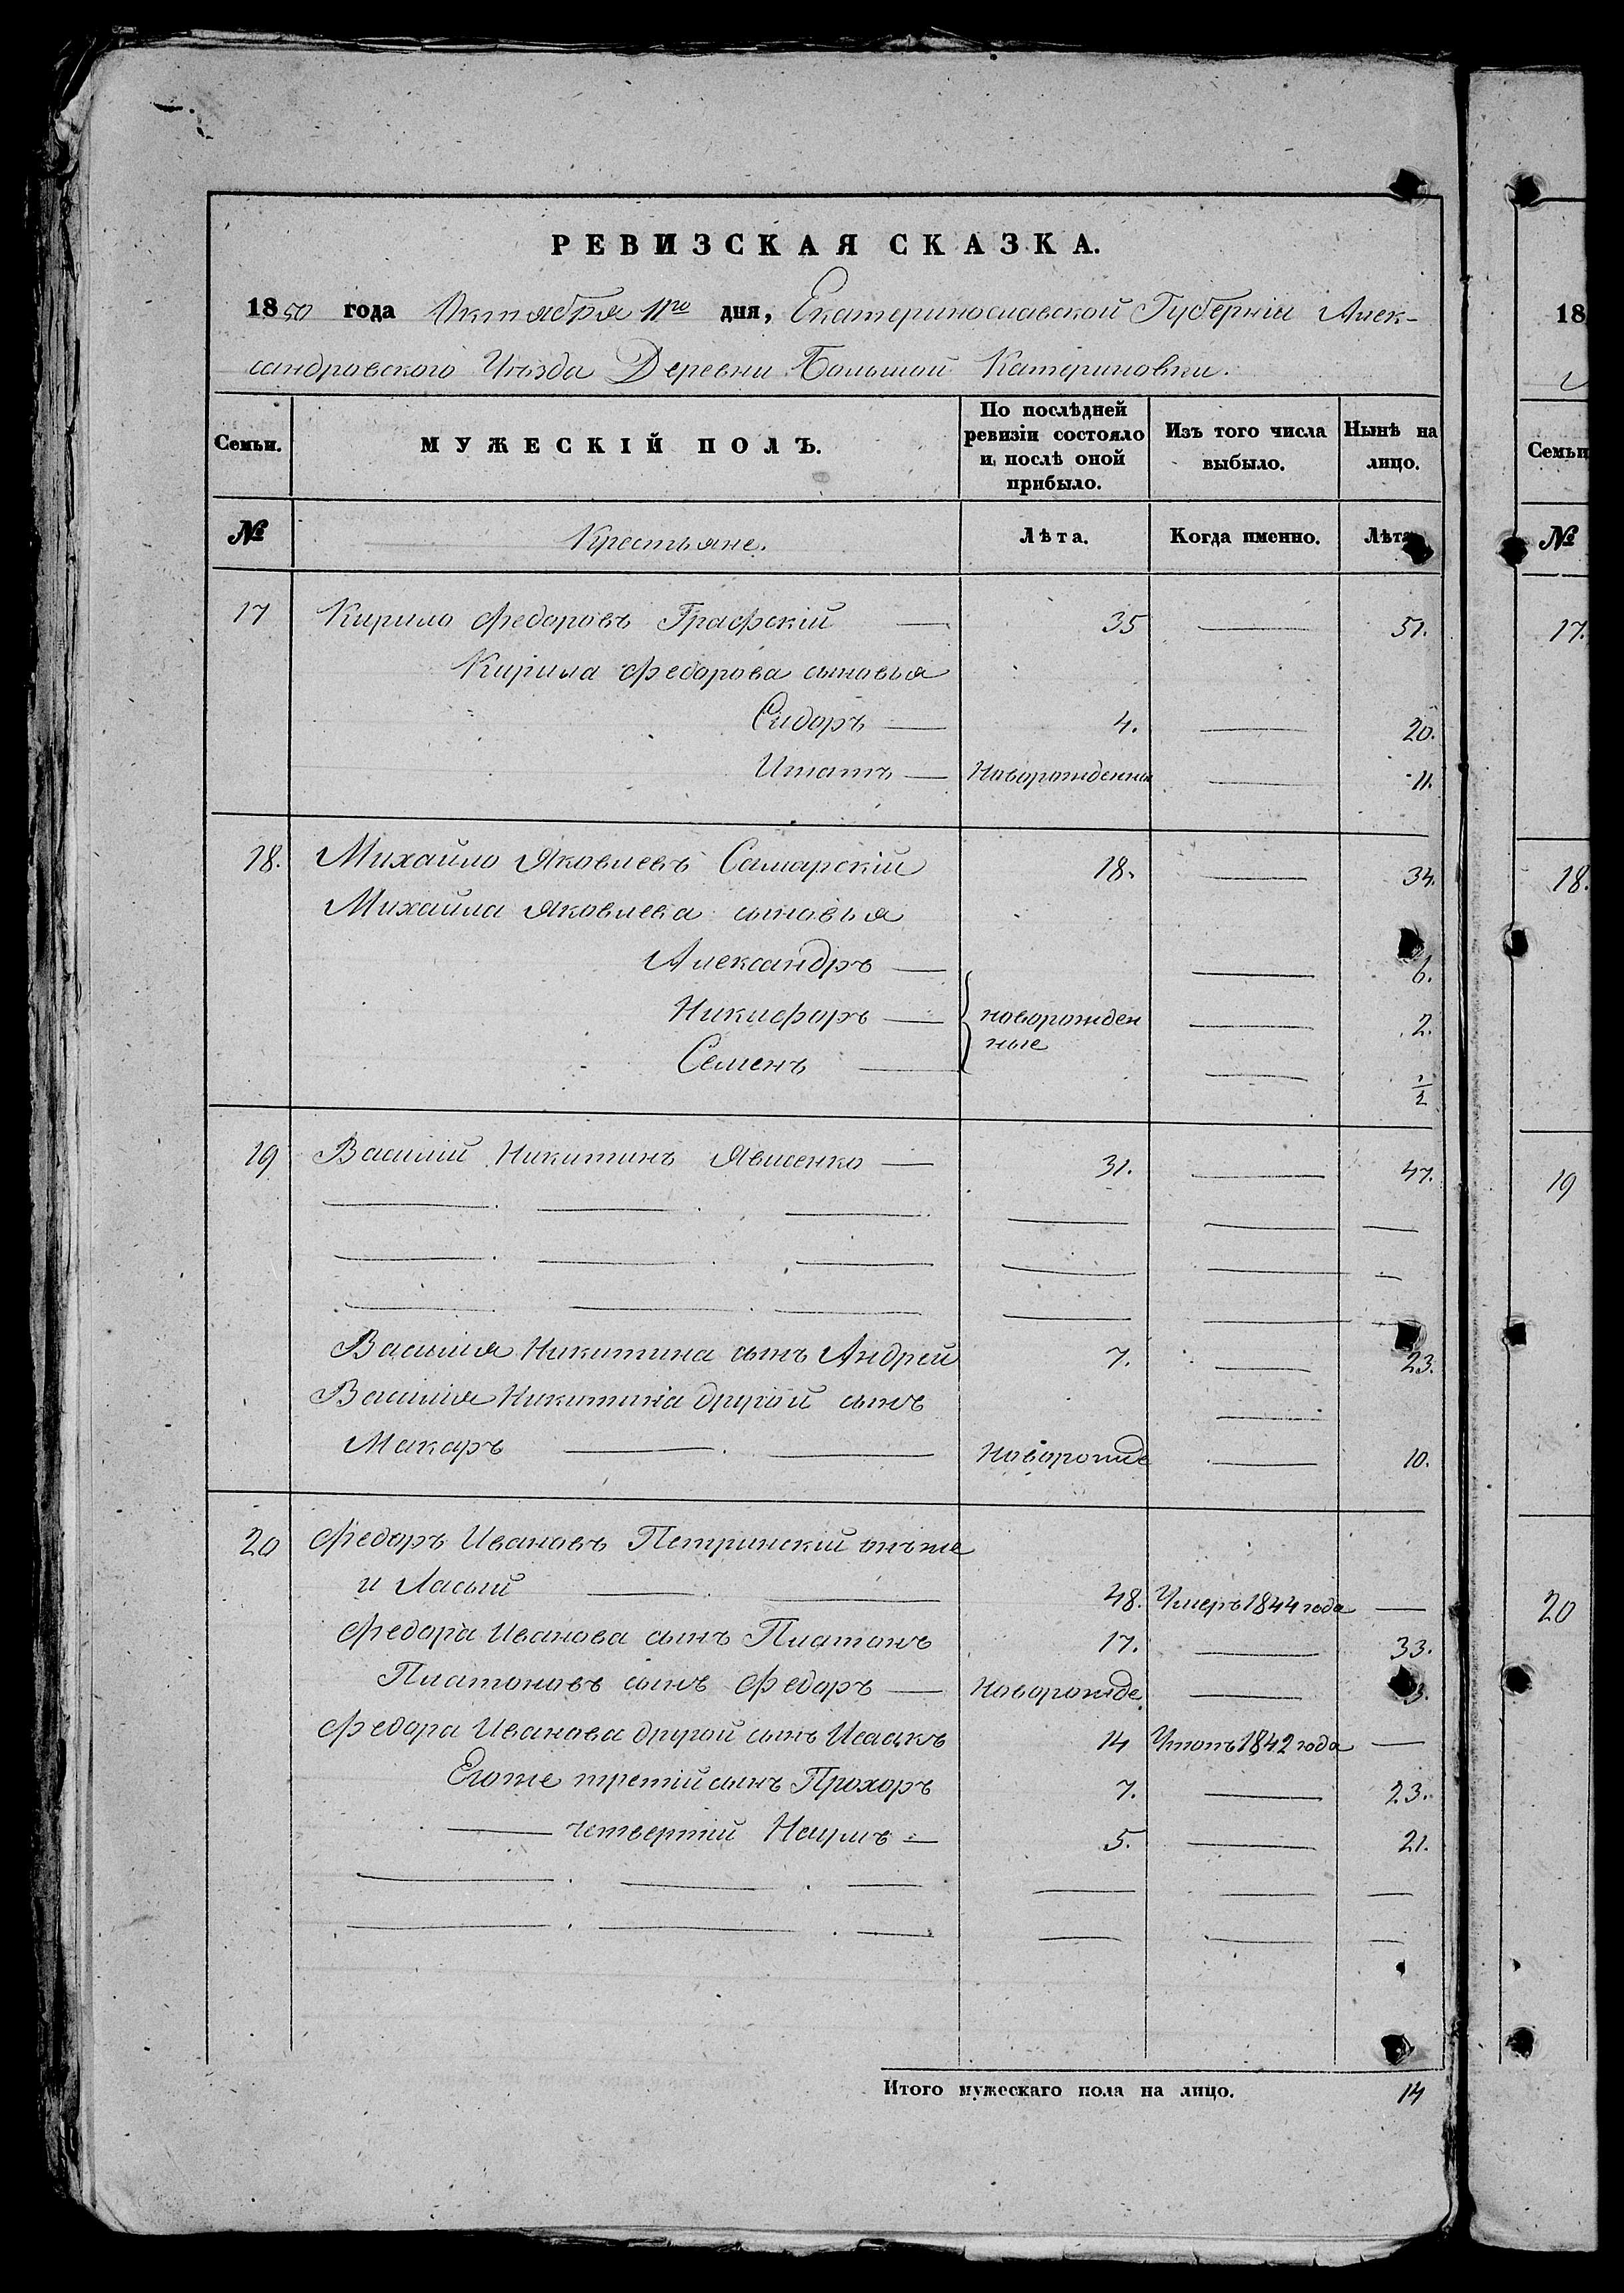 РЕВИЗСКАЯ СКАЗКА.
1850 года Октября 11го дня, Екатеринославской Губерніи Алек-
сандровского Уѣзда Деревни Большой Катериновки.
Семьи. МУЖЕСКІЙ ПОЛЪ. По послѣдней ревизіи состояло и послѣ оной прибыло. Изъ того числа выбыло. Нынѣ на лицо.
№ Крестьяне. Лѣта. Когда именно. Лѣта
17 Кирило Федоровъ Графскій — 35 — 51.
Кирила Федорова сыновья
Сидоръ — 4. — 20.
Игнатъ — Новорожденны — 11.
18. Михайло Яковлевъ Самарскій 18. — 34.
Михайла Яковлева сыновья
Александръ — — 6.
Никифоръ — новорожден — 2.
ные
Семенъ — — 1/2
19 Василій Никитинъ Явтенко — 31. — 47.
Василия Никитина сынъ Андрей 7. — 23.
Василия Никитина другой сынъ —
Макаръ — Новорожде — 10.
20 Федоръ Ивановъ Петринскій онъ же
и Ласый — 48. Умеръ 1844 года —
Федора Иванова сынъ Платонъ 17. — 33.
Платоновъ сынъ Федоръ — Новорожде — 3.
Федора Иванова другой сынъ Исаакъ 14 Утопъ 1842 года —
Егоже третій сынъ Прохоръ 7. — 23.
— четвертій Наумъ — 5. — 21.
Итого мужескаго пола на лицо. 14
18
Семьи
№
17.
18.
19
20